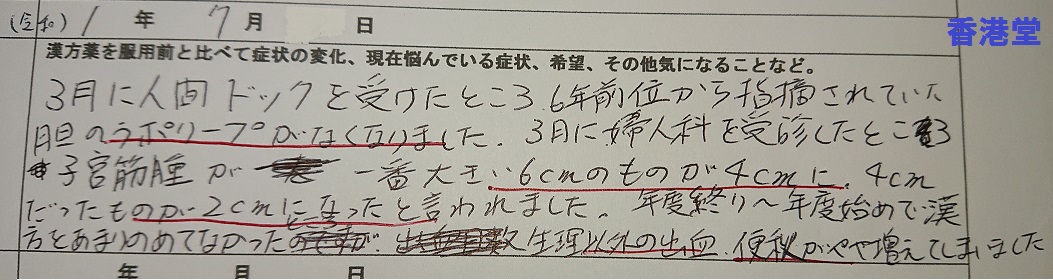 (令和) 1 年 7 月 日
香港堂
漢方薬を服用前と比べて症状の変化、現在悩んでいる症状、希望、その他気になることなど。
3月に人間ドックを受けたところ、6年前位から指摘されていた
胆のうポリープがなくなりました。3月に婦人科を受診したところ
子宮筋腫が 一番大きい6cmのものが4cmに、4cm
だったものが2cmになったと言われました。年度終り〜年度始めで漢
方をあまりのめてなかった 生理以外の出血、便秘がやや増えてしまいました
年 月 日